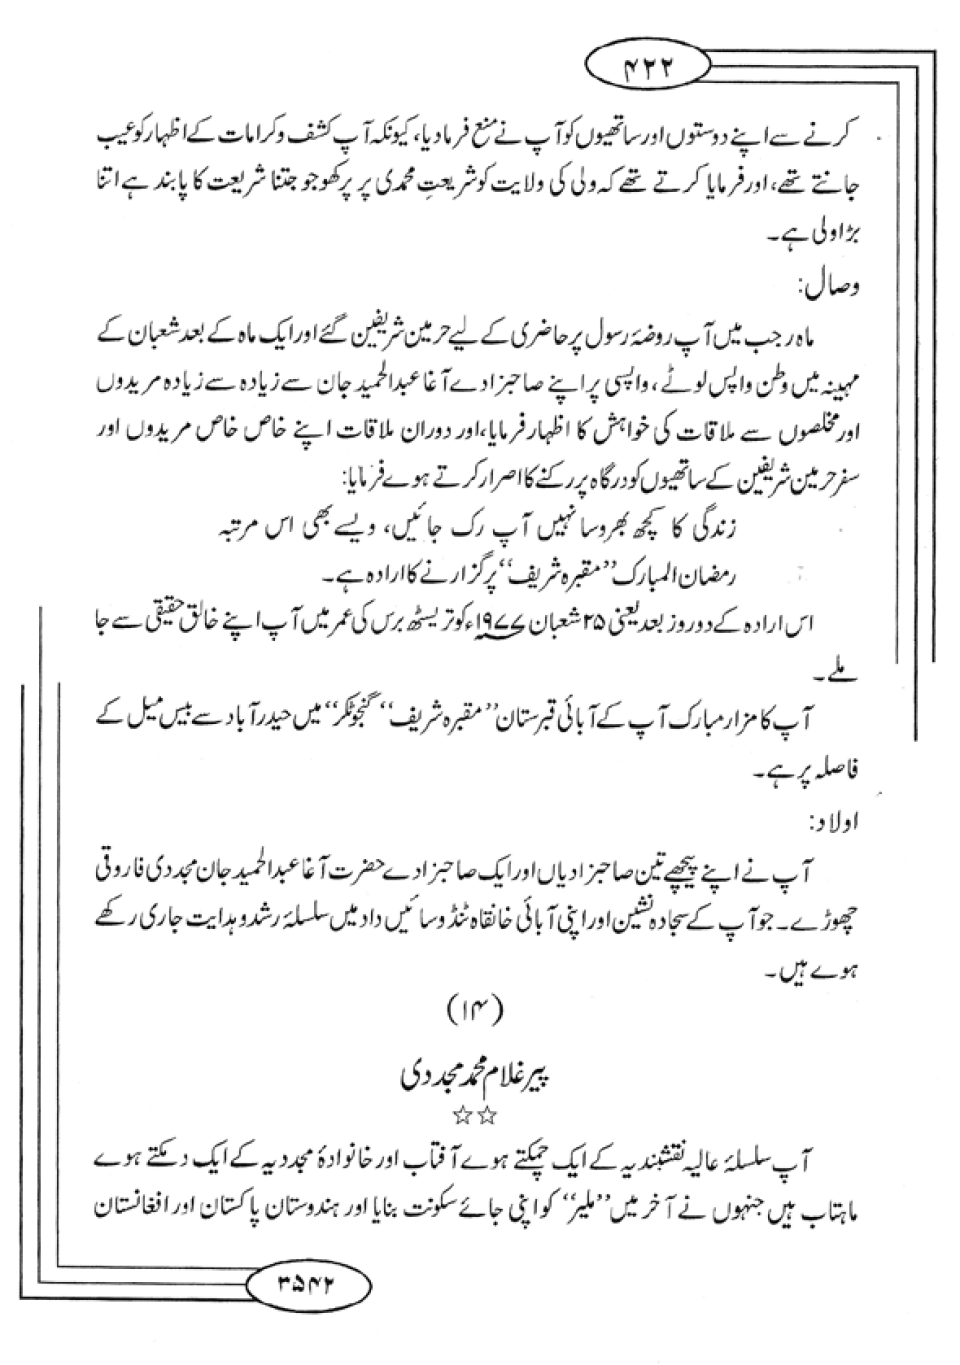 ۴۲۲
کرنے سے اپنے دوستوں اور ساتھیوں کو آپ نے منع فرمادیا، کیونکہ آپ کشف و کرامات کے اظہار کو عیب
جانتے تھے، اور فرمایا کرتے تھے کہ ولی کی ولایت کو شریعتِ محمدی پر پرکھو جو جتنا شریعت کا پابند ہے اتنا
بڑا ولی ہے۔
وصال:
ماہ رجب میں آپ روضۂ رسول پر حاضری کے لیے حرمین شریفین گئے اور ایک ماہ کے بعد شعبان کے
مہینہ میں وطن واپس لوٹے، واپسی پر اپنے صاحبزادے آغا عبدالحمید جان سے زیادہ سے زیادہ مریدوں
اور مخلصوں سے ملاقات کی خواہش کا اظہار فرمایا، اور دوران ملاقات اپنے خاص خاص مریدوں اور
سفر حرمین شریفین کے ساتھیوں کو درگاہ پر رکنے کا اصرار کرتے ہوے فرمایا:
زندگی کا کچھ بھروسا نہیں آپ رک جائیں، ویسے بھی اس مرتبہ
رمضان المبارک ’’مقبرہ شریف‘‘ پر گزارنے کا ارادہ ہے۔
اس ارادہ کے دو روز بعد یعنی ۲۵ شعبان ۱۹۷۷ء کو تریسٹھ برس کی عمر میں آپ اپنے خالق حقیقی سے جا
ملے۔
آپ کا مزار مبارک آپ کے آبائی قبرستان ’’مقبرہ شریف‘‘ گنجو ٹکر‘‘ میں حیدرآباد سے بیس میل کے
فاصلہ پر ہے۔
اولاد:
آپ نے اپنے پیچھے تین صاحبزادیاں اور ایک صاحبزادے حضرت آغا عبدالحمید جان مجددی فاروقی
چھوڑے۔ جو آپ کے سجادہ نشین اور اپنی آبائی خانقاہ ٹنڈو سائیں داد میں سلسلۂ رشد و ہدایت جاری رکھے
ہوے ہیں۔
(۱۴)
پیر غلام محمد مجددی
☆☆
آپ سلسلۂ عالیہ نقشبندیہ کے ایک چمکتے ہوے آفتاب اور خانوادۂ مجددیہ کے ایک دمکتے ہوے
ماہتاب ہیں جنہوں نے آخر میں ’’ملیر‘‘ کو اپنی جائے سکونت بنایا اور ہندوستان پاکستان اور افغانستان
۳۵۴۲